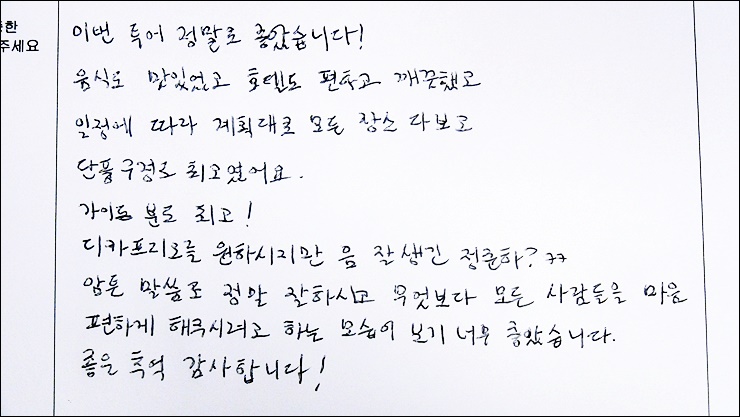 한
주세요
이번 투어 정말로 좋았습니다!
음식도 맛있었고 호텔도 편하고 깨끗했고
일정에 따라 계획대로 모든 장소 다보고
단풍구경도 최고였어요.
가이드 분도 최고!
디카프리오를 원하시지만 음 잘생긴 정준하? ㅋㅋ
암튼 말씀도 정말 잘하시고 무엇보다 모든 사람들을 마음
편하게 해주시려고 하는 모습이 보기 너무 좋았습니다.
좋은 추억 감사합니다!